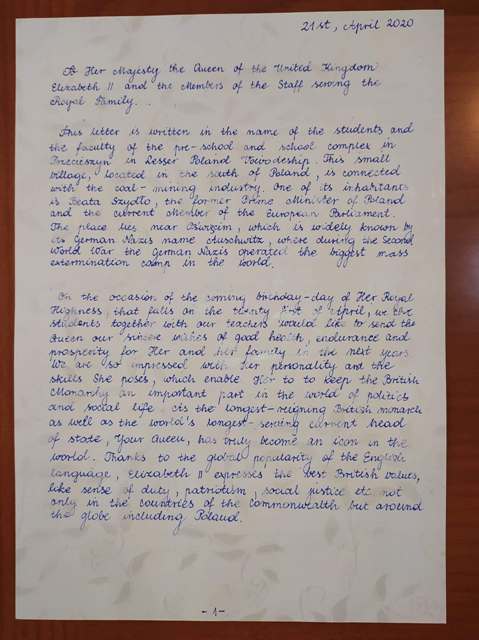 21st, April 2020
To Her Majesty the Queen of the United Kingdom
Elizabeth II and the Members of the Staff serving the
Royal Family...
This letter is written in the name of the students and
the faculty of the pre-school and school complex in
Brzeszcze in Lesser Poland Voivodeship. This small
village, located in the south of Poland, is connected
with the coal-mining industry. One of its inhabitants
is Beata Szydło, the former Prime Minister of Poland
and the current member of the European Parliament.
The place lies near Oświęcim, which is widely known by
its German Nazis name Auschwitz, where during the Second
World War the German Nazis operated the biggest mass
extermination camp in the world.
On the occasion of the coming birthday-day of Her Royal
Highness, that falls on the twenty first of April, we the
students together with our teachers would like to send the
Queen our sincere wishes of good health, endurance and
prosperity for Her and her family in the next years.
We are so impressed with her personality and the
skills She poses, which enable Her to to keep the British
Monarchy an important part in the world of politics
and social life. As the longest-reigning British monarch
as well as the world's longest-serving current head
of state, Your Queen, has truly become an icon in the
world. Thanks to the global popularity of the English
language, Elizabeth II expresses the best British values,
like sense of duty, patriotism, social justice etc. not
only in the countries of the Commonwealth but around
the globe including Poland.
-1-